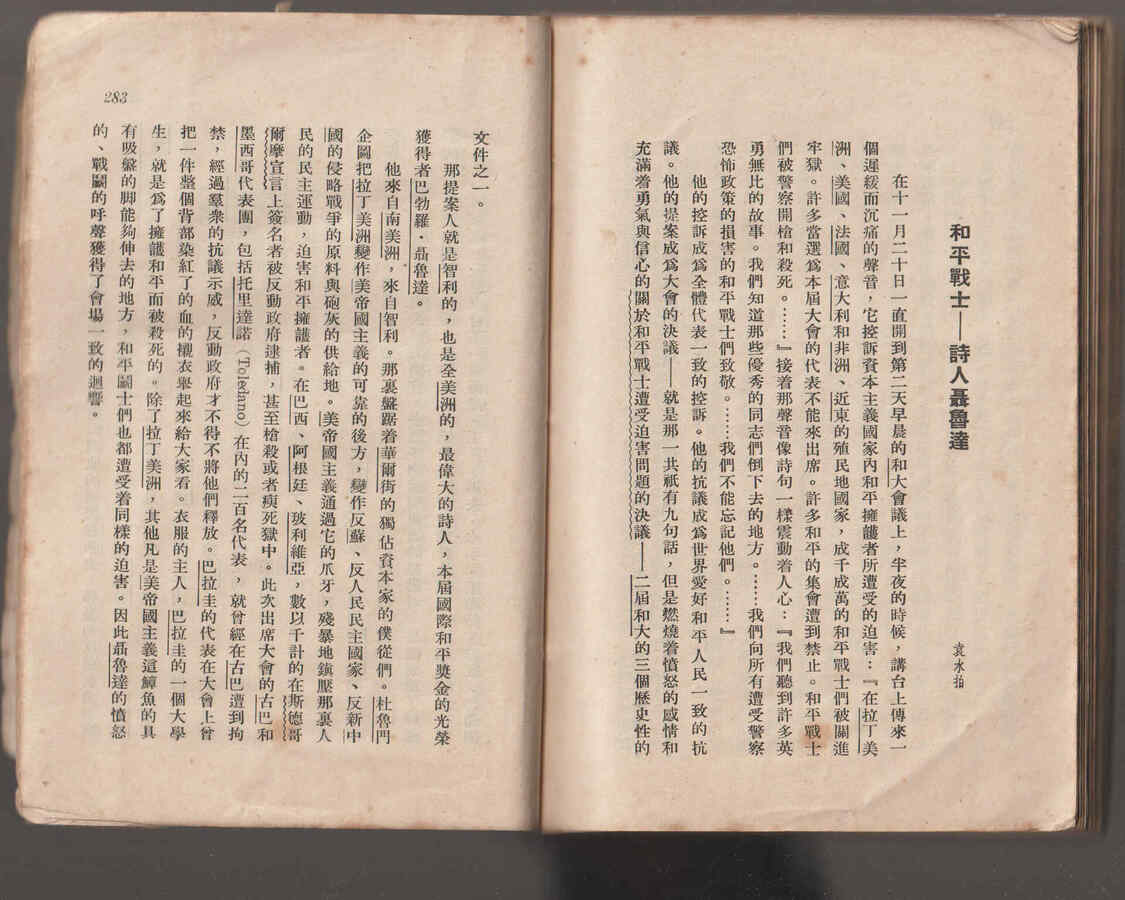 和平戰士——詩人聶魯達
袁水拍
在十一月二十日一直開到第二天早晨的和大會議上，半夜的時候，講台上傳來一
個遲緩而沉痛的聲音，它控訴資本主義國家內和平擁護者所遭受的迫害：『在拉丁美
洲、美國、法國、意大利和非洲、近東的殖民地國家，成千成萬的和平戰士們被關進
牢獄。許多當選爲本屆大會的代表不能來出席。許多和平的集會遭到禁止。和平戰士
們被警察開槍和殺死。……』接着那聲音像詩句一樣震動着人心：『我們聽到許多英
勇無比的故事。我們知道那些優秀的同志們倒下去的地方。……我們向所有遭受警察
恐怖政策的損害的和平戰士們致敬。……我們不能忘記他們。……』
他的控訴成爲全體代表一致的控訴。他的抗議成爲世界愛好和平人民一致的抗
議。他的提案成爲大會的決議——就是那一共祇有九句話，但是燃燒着憤怒的感情和
充滿着勇氣與信心的關於和平戰士遭受迫害問題的決議——二屆和大的三個歷史性的
文件之一。
那提案人就是智利的，也是全美洲的，最偉大的詩人，本屆國際和平獎金的光榮
獲得者巴勃羅·聶魯達。
他來自南美洲，來自智利。那裏盤踞着華爾街的獨佔資本家的僕從們。杜魯門
企圖把拉丁美洲變作美帝國主義的可靠的後方，變作反蘇、反人民民主國家、反新中
國的侵略戰爭的原料與砲灰的供給地。美帝國主義通過它的爪牙，殘暴地鎮壓那裏人
民的民主運動，迫害和平擁護者。在巴西、阿根廷、玻利維亞，數以千計的在斯德哥
爾摩宣言上簽名者被反動政府逮捕，甚至槍殺或者瘐死獄中。此次出席大會的古巴和
墨西哥代表團，包括托里達諾（Toledano）在內的二百名代表，就曾經在古巴遭到拘
禁，經過羣衆的抗議示威，反動政府才不得不將他們釋放。巴拉圭的代表在大會上曾
把一件整個背部染紅了的血的襯衣舉起來給大家看。衣服的主人，巴拉圭的一個大學
生，就是爲了擁護和平而被殺死的。除了拉丁美洲，其他凡是美帝國主義這鱆魚的具
有吸盤的脚能夠伸去的地方，和平鬭士們也都遭受着同樣的迫害。因此聶魯達的憤怒
的、戰鬭的呼聲獲得了會場一致的迴響。
283